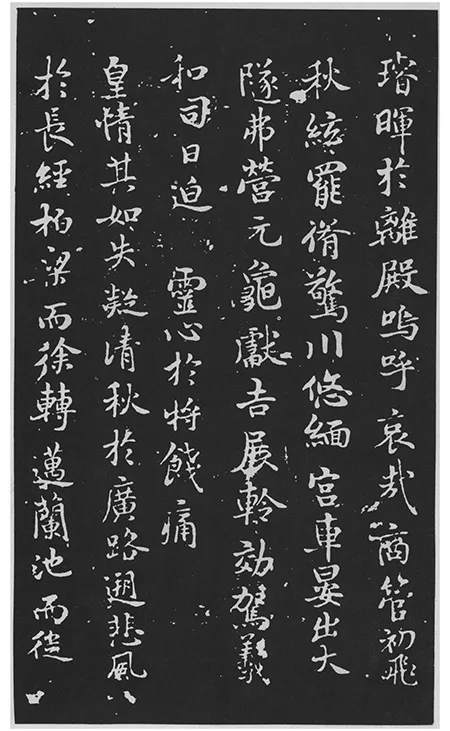 璿暉於離殿嗚呼哀哉商管初飛
秋絃罷脩驚川悠緬宮車晏出大
隧弗營元龜獻吉展軨効駕羲
和司日迫　靈心於將餞痛
皇情其如失凝清秋於廣路遡悲風
於長經栢梁而徐轉邁蘭池而從